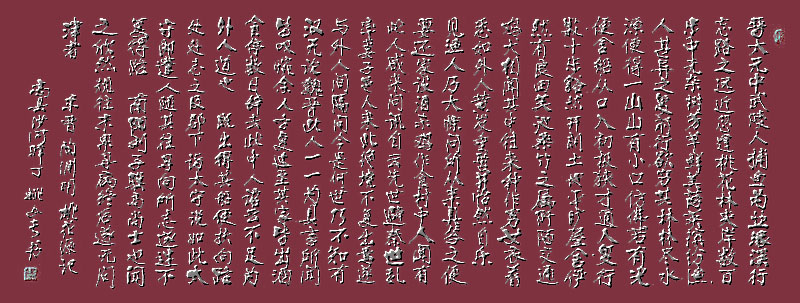 晉太元中武陵人捕魚為業緣溪行
忘路之遠近忽逢桃花林夾岸數百
步中無雜樹芳草鮮美落英繽紛漁
人甚異之復前行欲窮其林林盡水
源便得一山山有小口仿佛若有光
便舍船從口入初極狹才通人復行
數十步豁然開朗土地平曠屋舍儼
然有良田美池桑竹之屬阡陌交通
雞犬相聞其中往來種作男女衣著
悉如外人黃髮垂髫并怡然自樂
見漁人乃大驚問所從來具答之便
要還家設酒殺雞作食村中人聞有
此人咸來問訊自云先世避秦世亂
率妻子邑人來此絕境不復出焉遂
與外人間隔問今是何世乃不知有
漢無論魏晉此人一一為具言所聞
皆嘆惋余人各復延至其家皆出酒
食停數日辭去此中人語云不足為
外人道也 既出得其船便扶向路
處處志之及郡下詣太守說如此太
守即遣人隨其往尋向所志遂迷不
復得路 南陽劉子驥高尚士也聞
之欣然規往未果尋病終后遂無問
津者 東晉陶淵明桃花源記